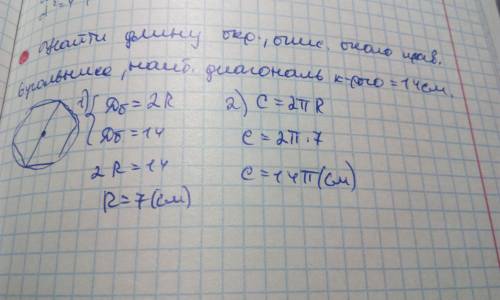 Найти длину окр., опис. около прав.
6угольника, наиб. диагональ к-рого = 14см.
1) { Дб = 2R
Дб = 14
2R = 14
R = 7 (см)
2) C = 2πR
C = 2π·7
C = 14π (см)